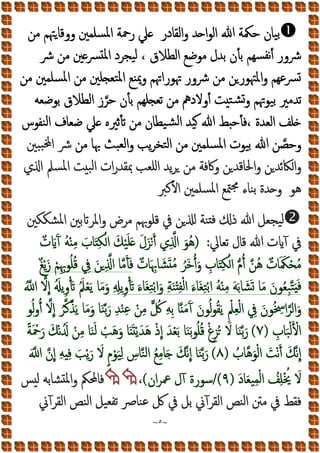 ❶بيان حكمة الله الواحد والقادر علي رحمة المسلمين ووقايتهم من
شرور أنفسهم بأن بدل موضع الطلاق ، ليجرد المتسرعين من شر
تسرعهم والمتهورين من شرور تهوراتهم ويمنع المتعجلين من المسلمين من
تدمير بيوتهم وتشتيت أولادهم من تعجلهم بأن حرَّز الطلاق بوضعه
خلف العدة ،فأحبط الله كيد الشيطان من تأثيره علي ضعاف النفوس
وحصَّن الله بيوت المسلمين من التخريب والعبث بها من شر المخببين
والكائدين والحاقدين وكافة من يريد اللعب بمقدرات البيت المسلم الذي
هو وحدة بناء مجتمع المسلمين الأكبر
❷ليجعل الله ذلك فتنة للذين في قلوبهم مرض والمرتابين المشككين
في آيات الله قال تعالي: (هُوَ الَّذِي أَنْزَلَ عَلَيْكَ الْكِتَابَ مِنْهُ آيَاتٌ
مُحْكَمَاتٌ هُنَّ أُمُّ الْكِتَابِ وَأُخَرُ مُتَشَابِهَاتٌ فَأَمَّا الَّذِينَ فِي قُلُوبِهِمْ زَيْغٌ
فَيَتَّبِعُونَ مَا تَشَابَهَ مِنْهُ ابْتِغَاءَ الْفِتْنَةِ وَابْتِغَاءَ تَأْوِيلِهِ وَمَا يَعْلَمُ تَأْوِيلَهُ إِلَّا اللَّهُ
وَالرَّاسِخُونَ فِي الْعِلْمِ يَقُولُونَ آَمَنَّا بِهِ كُلٌّ مِنْ عِنْدِ رَبِّنَا وَمَا يَذَّكَّرُ إِلَّا أُولُو
الْأَلْبَابِ (٧) رَبَّنَا لَا تُزِغْ قُلُوبَنَا بَعْدَ إِذْ هَدَيْتَنَا وَهَبْ لَنَا مِنْ لَدُنْكَ رَحْمَةً
إِنَّكَ أَنْتَ الْوَهَّابُ (٨) رَبَّنَا إِنَّكَ جَامِعُ النَّاسِ لِيَوْمٍ لَا رَيْبَ فِيهِ إِنَّ اللَّهَ
لَا يُخْلِفُ الْمِيعَادَ (٩)/سورة آل عمران)، فالمحكم والمتشابه ليس
فقط في متن النص القرآني بل في كل عناصر تفعيل النص القرآني
~٥~